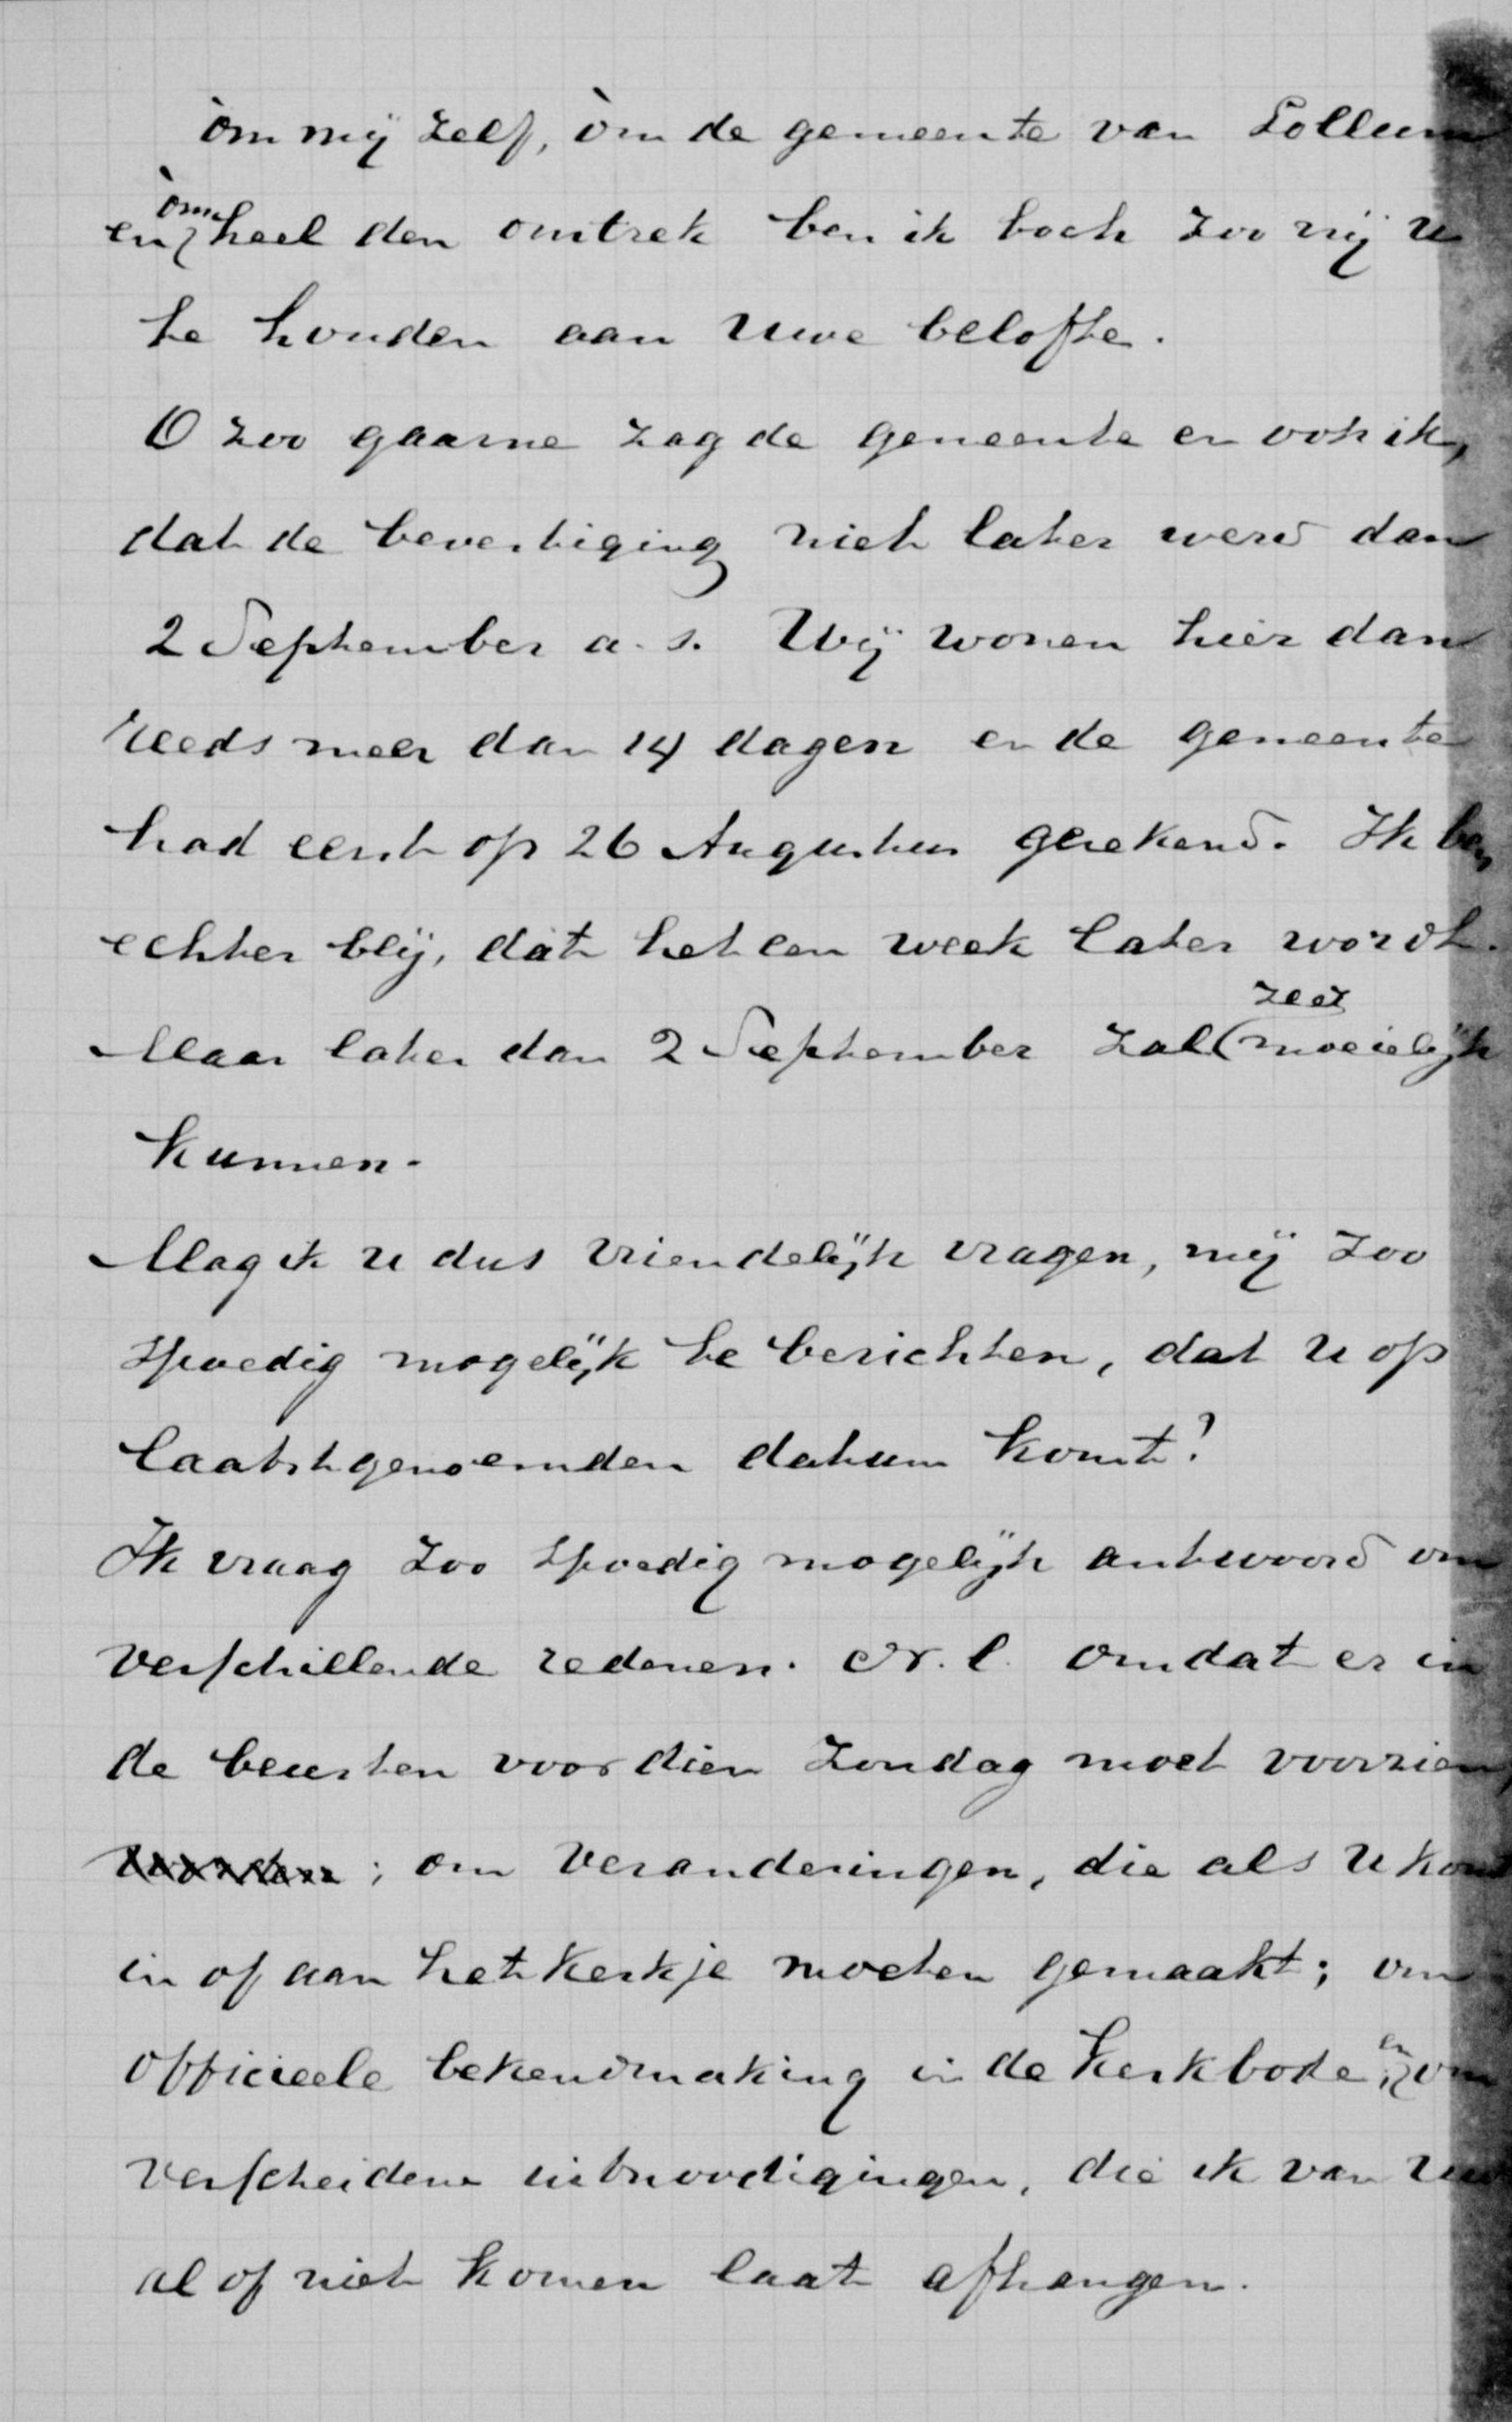 òm mij zelf, òm de gemeente van Lollum
en òm heel den omtrek ben ik toch zoo vrij u
te houden aan Uwe belofte.
O zoo gaarne zag de gemeente en ook ik,
dat de bevestiging niet later werd dan
2 September a.s. Wij wonen hier dan
reeds meer dan 14 dagen en de gemeente
had eerst op 26 Augustus gerekend. Ik ben
echter blij, dat het een week later wordt.
Maar later dan 2 September zal zeer moeielijk
kunnen.
Mag ik u dus vriendelijk vragen, mij zoo
spoedig mogelijk te berichten, dat u op
laatstgenoemden datum komt?
Ik vraag zoo spoedig mogelijk antwoord om
verschillende redenen. N.l. omdat er in
de beurten voor dien Zondag moet voorzien
worden; om veranderingen, die als U komt
in of aan het kerkje moeten gemaakt; om
officieele bekendmaking in de Kerkbode; en om
verscheidene uitnoodigingen, die ik van uw
al of niet komen laat afhangen.